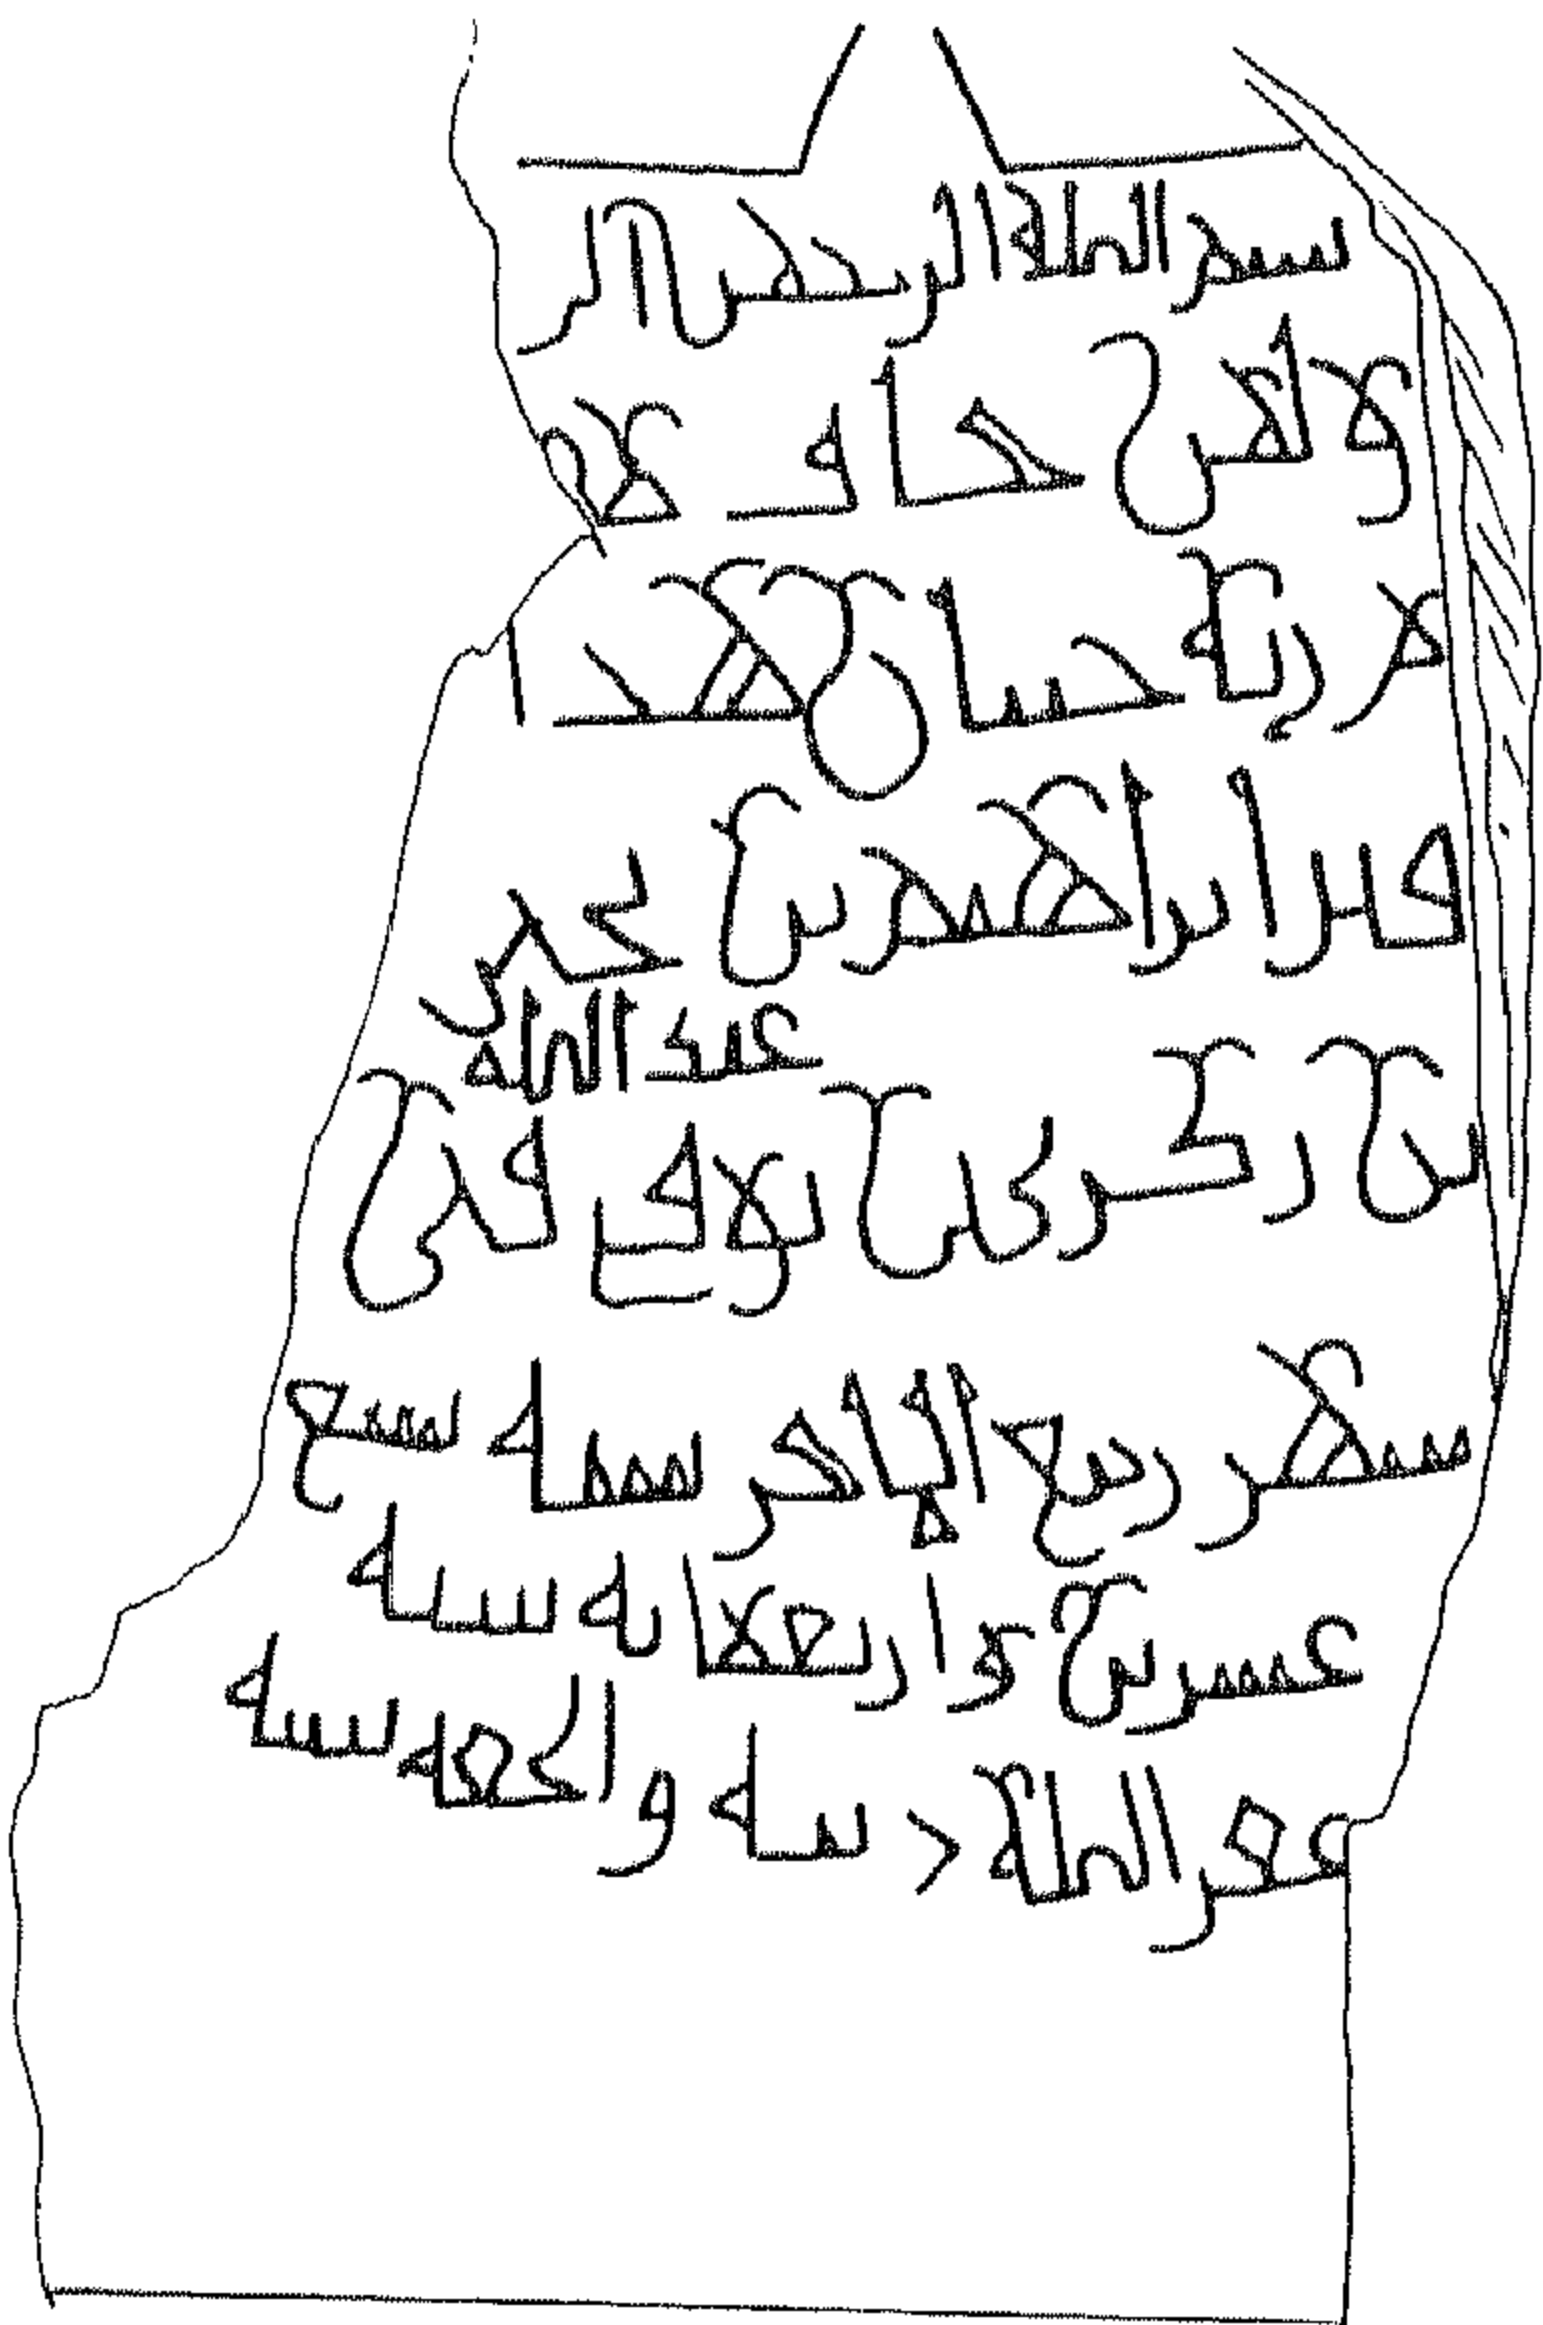 بسم الله الرحمن الر
ولمن خاف مقا
م ربه جنتان هذا
قبر ابراهيم بن محمد
عبد الله
بن توفي في
شهر ربيع الاخر سنه
عشرين و اربعمايه سنه
غفر الله ذنبه و الحقه بنبيه